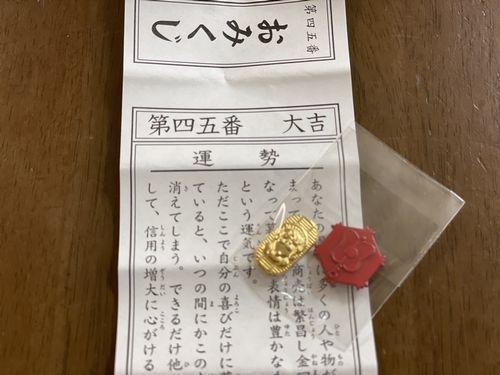 第四五番
おみくじ
第四五番 大吉
運勢
あなたの は多くの人や物が
まって 商売は繁昌し金
なって 表情は豊かな
という運気です。
ただここで自分の喜びだけに
ていると、いつの間にかこの
消えてしまう。できるだけ他
して、信用の増大に心がける